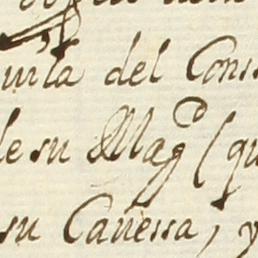 del Cons
de su Mag^d (qu
su Cavessa, y